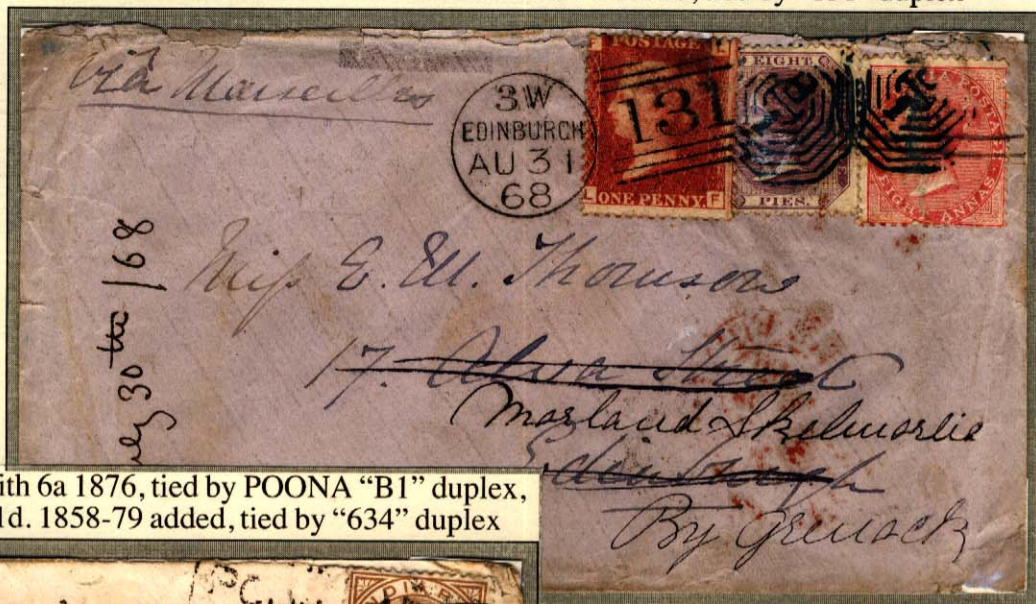 via Marseilles
3W
EDINBURGH
AU 31
68
131
POSTAGE
L ONE PENNY. F
EIGHT
PIES.
POSTAGE
EIGHT ANNAS
Miss E. M. Thomson
17. Alva Street
Morland Skelmorlie
Edinburgh
By Greenock
July 30th /68
ith 6a 1876, tied by POONA “B1” duplex,
1d. 1858-79 added, tied by “634” duplex